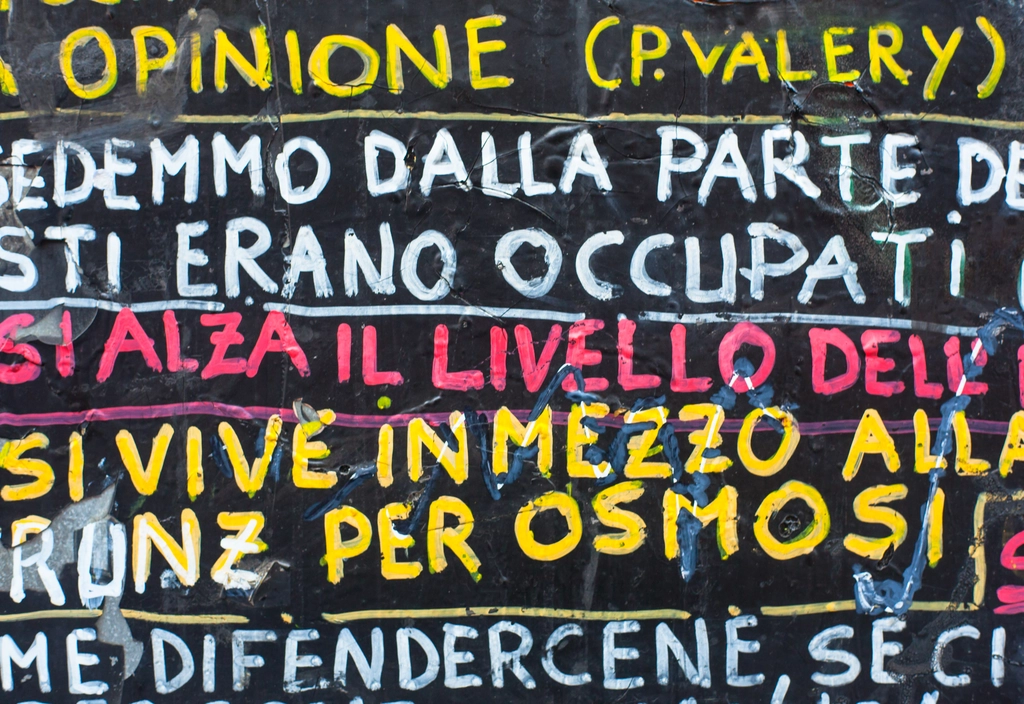 A OPINIONE (P. VALERY)
SEDEMMO DALLA PARTE DE
STI ERANO OCCUPATi
SI ALZA IL LIVELLO DELL
SI VIVE IN MEZZO ALLA
RONZ PER OSMOSI
ME DIFENDERCENE, SE CI